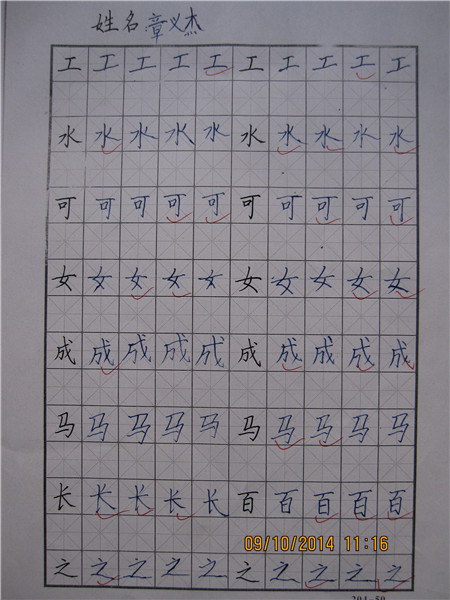 姓名:章义杰
工工工工工工工工工工
水水水水水水水水水水
可可可可可可可可可可
女女女女女女女女女女
成成成成成成成成成成
马马马马马马马马马马
长长长长长百百百百百
09/10/2014 11:16
之之之之之之之之之之